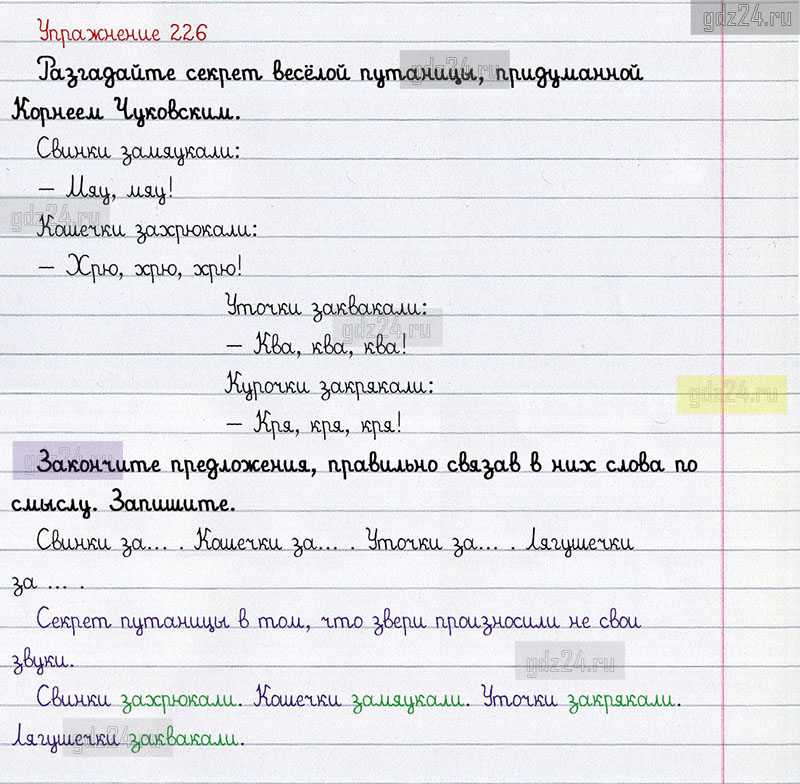 gdz24.ru
Упражнение 226
Разгадайте секрет весёлой путаницы, придуманной
gdz24.ru
Корнеем Чуковским.
Свинки замяукали:
– Мяу, мяу!
gdz24.ru
Кошечки захрюкали:
– Хрю, хрю, хрю!
Уточки заквакали:
gdz24.ru
– Ква, ква, ква!
Курочки закрякали:
gdz24.ru
– Кря, кря, кря!
Закончите предложения, правильно связав в них слова по
gdz24.ru
смыслу. Запишите.
Свинки за... . Кошечки за... . Уточки за... . Лягушечки
за ... .
Секрет путаницы в том, что звери произносили не свои
звуки.
gdz24.ru
Свинки захрюкали. Кошечки замяукали. Уточки закрякали.
Лягушечки заквакали.
gdz24.ru